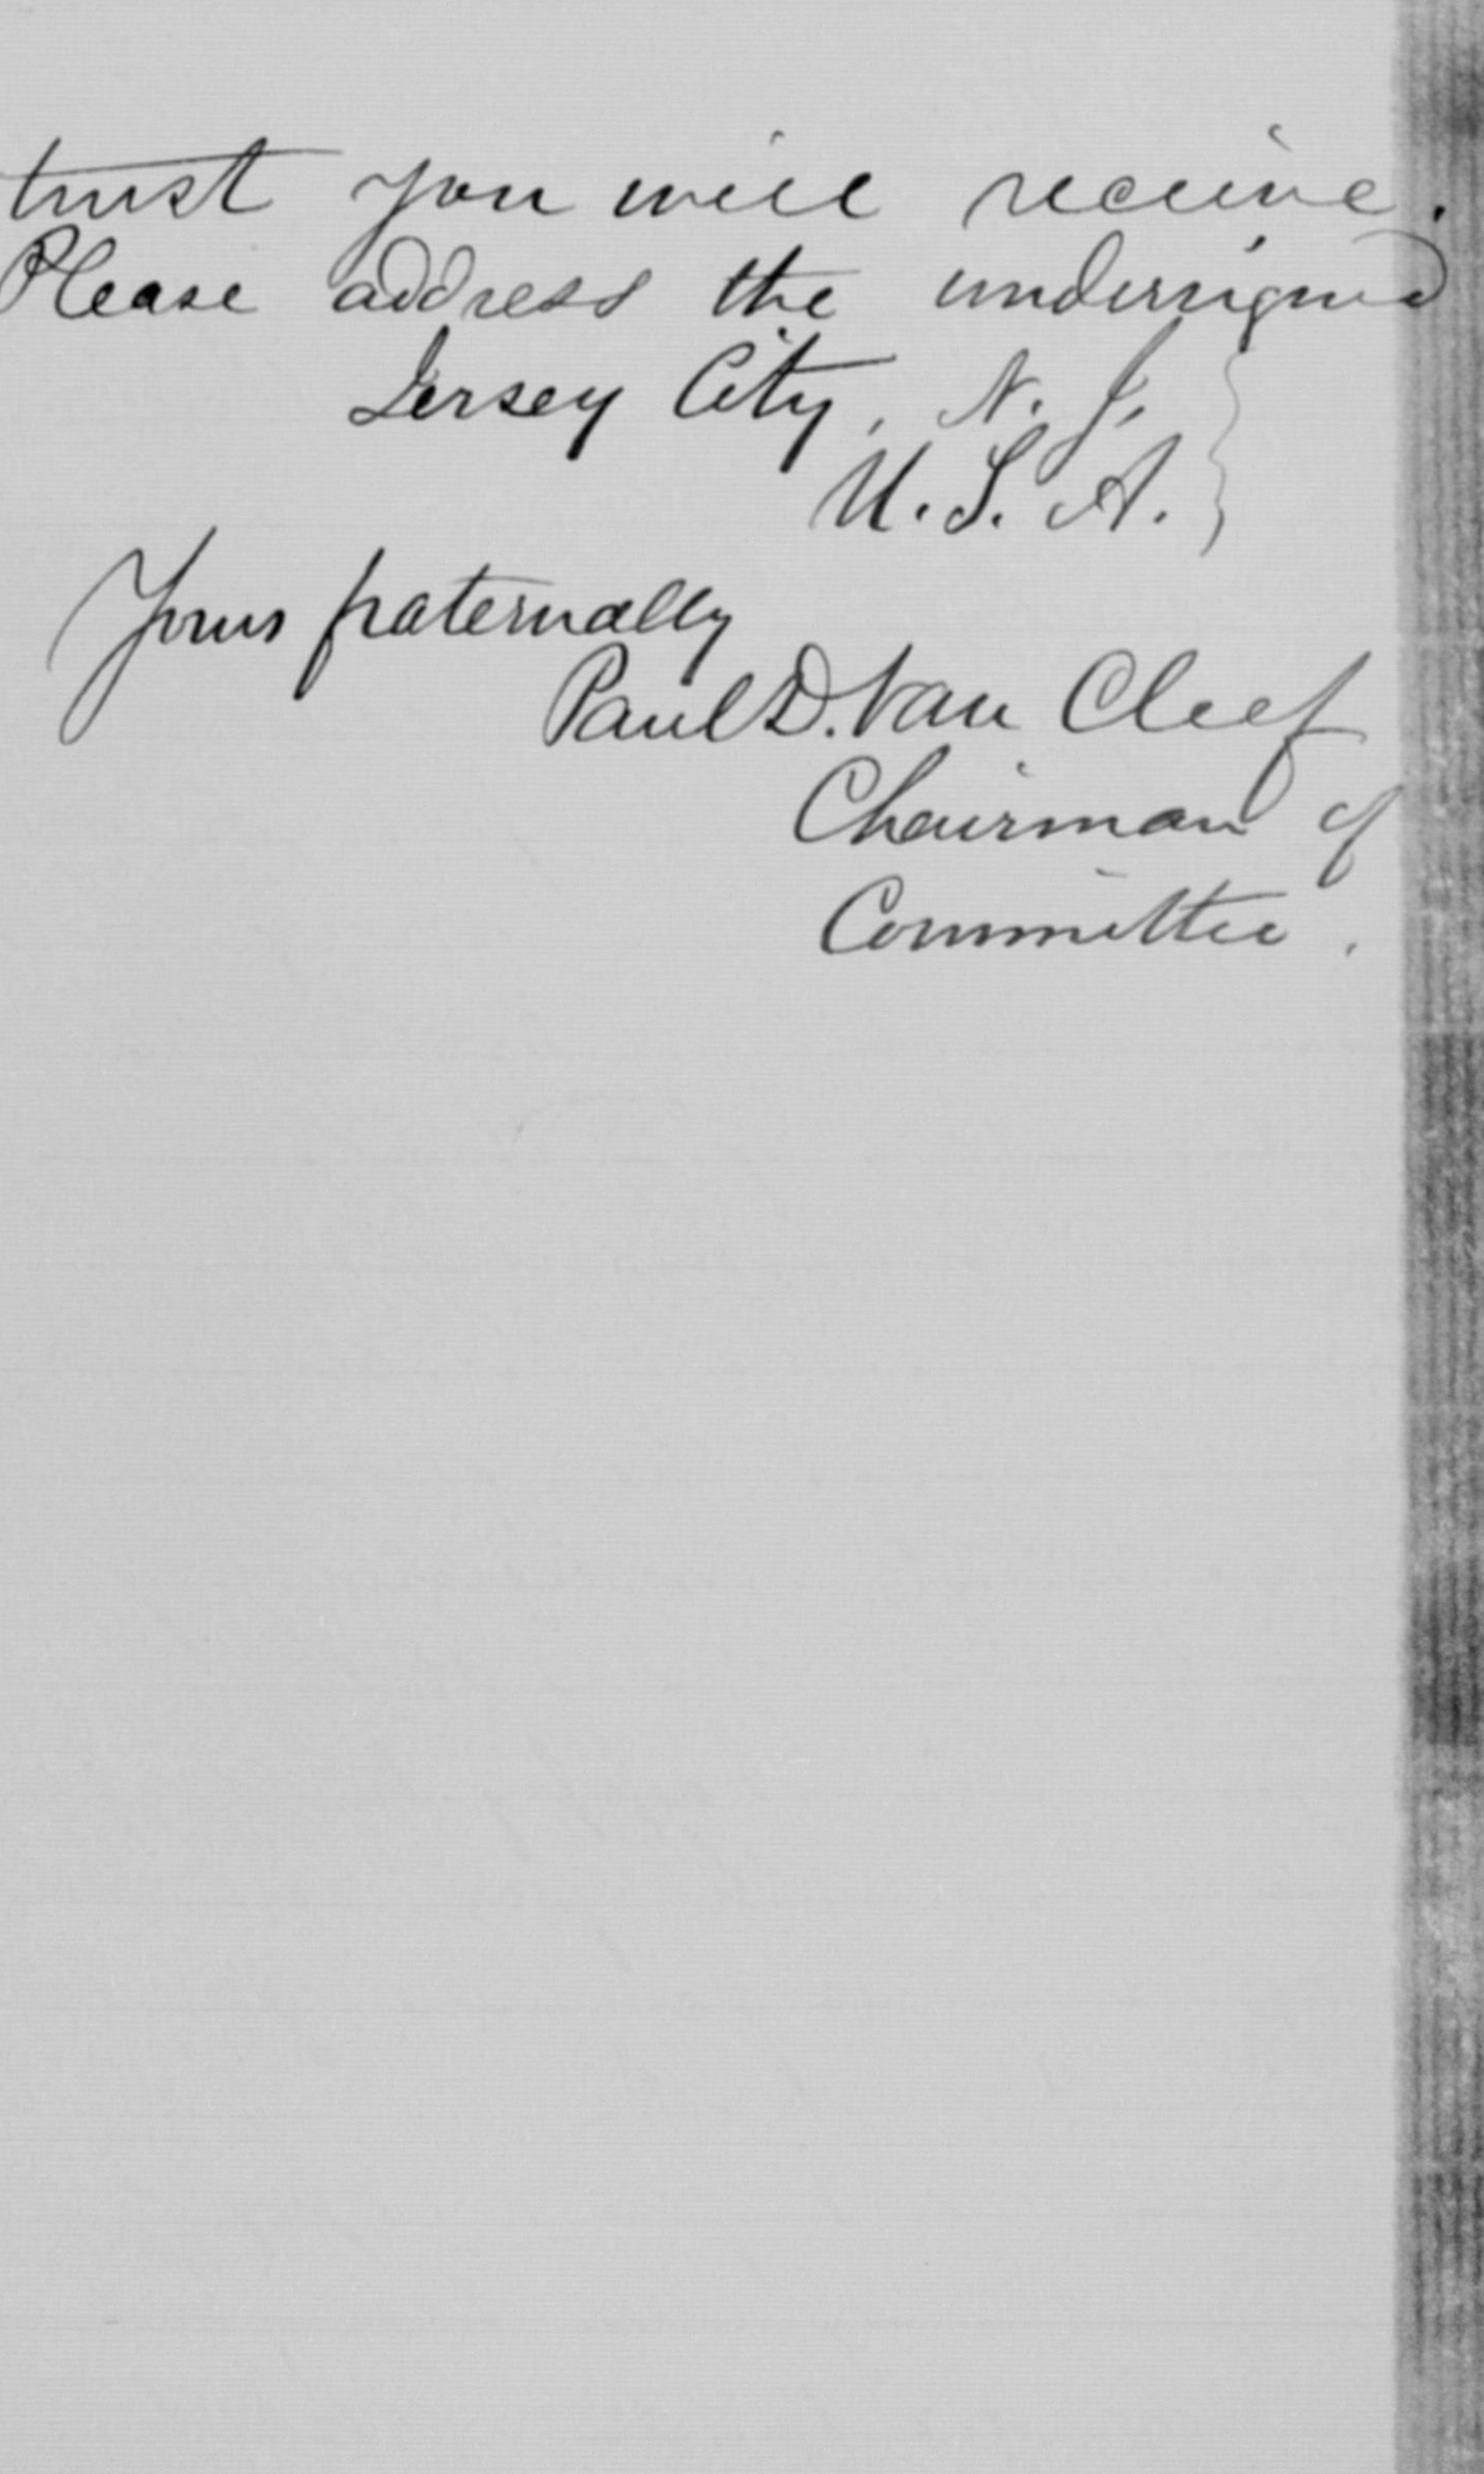 trust you will receive.
Please address the undersigned
Jersey City, N. J.
U. S. A.
Yours fraternally
Paul D. Van Cleef
Chairman of
Committee.